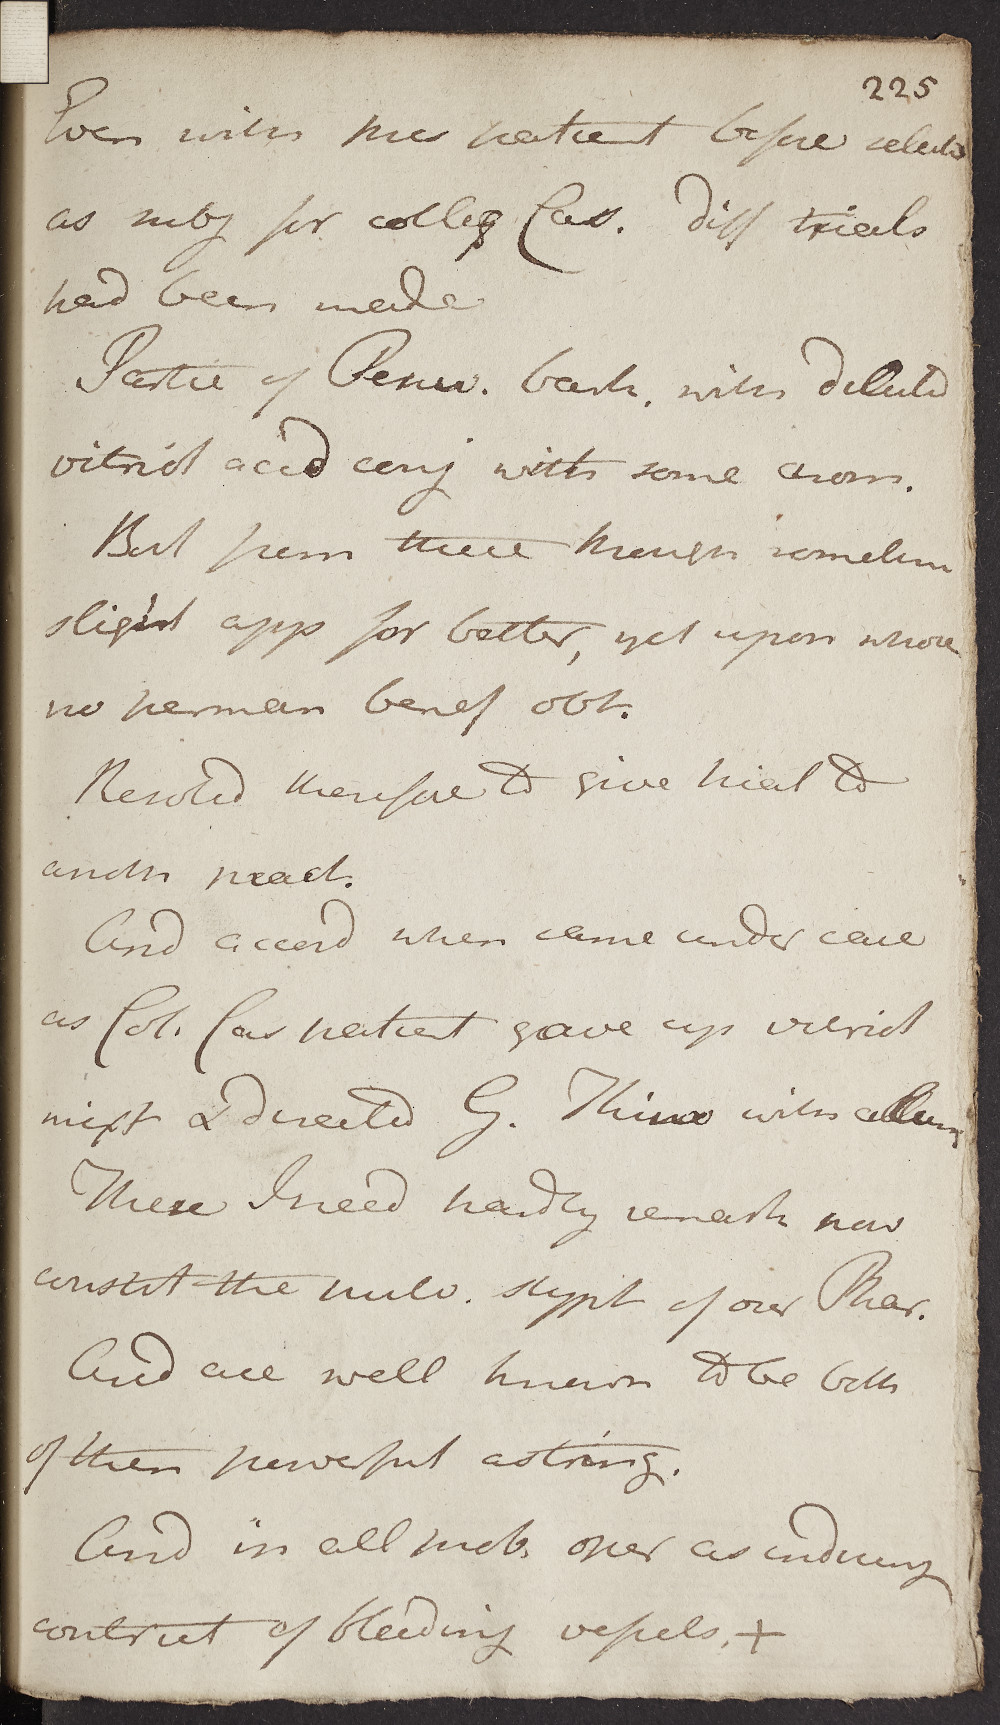 225
Even with this patient before select
as subj for colleg Cas. diff trials
had been made
Partic of Peruv. bark. with diluted
vitriol acid conj with some arom.
But from these though sometim
slight app for better, yet upon whole
no perman benef obt.
Resolvd therefore to give trial to
anoth pract.
And accord when came under care
as Col. Cas patient gave up vitriol
mixt & directed G. Kino with allum
These I need hardly remark now
constit the pulv. stypt of our Phar.
And are well known to be both
of them powerful astring.
And in all prob. oper as inducing
contract of bleeding vessels, +